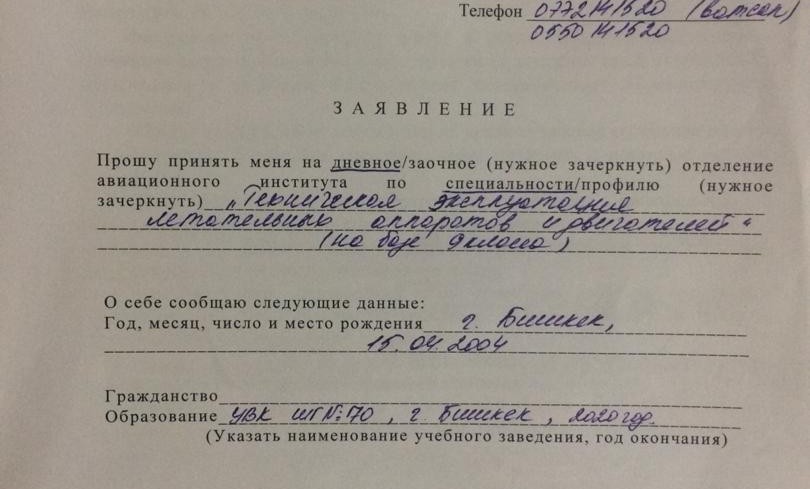 Телефон 0772141520 (ватсап)
0550141520
ЗАЯВЛЕНИЕ
Прошу принять меня на дневное/заочное (нужное зачеркнуть) отделение
авиационного института по специальности/профилю (нужное
зачеркнуть) „Техническая эксплуатация
летательных аппаратов и двигателей“
(на базе 9 класса)
О себе сообщаю следующие данные:
Год, месяц, число и место рождения г. Бишкек,
15.04.2004
Гражданство
Образование УВК ШГ №70, г. Бишкек, 2020 год.
(Указать наименование учебного заведения, год окончания)